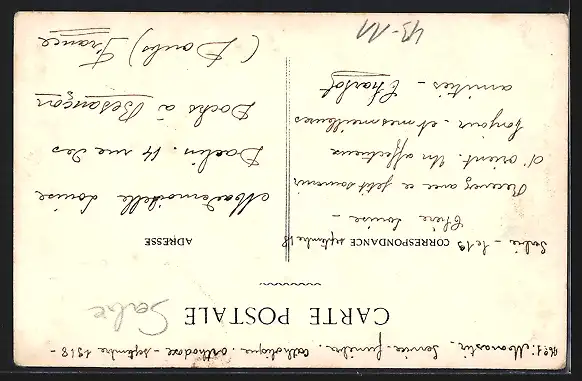 No 1. Monastir. Service funèbre. Catholique. Orthodoxe - septembre 1918 -
CARTE POSTALE
CORRESPONDANCE
ADRESSE
Serbie - le 19 septembre 18
Chère Louise -
Recevez avec ce petit souvenir
d'orient. Un affectueux
bonjour - et mes meilleures
amitiés - Charlot
Mademoiselle Louise
14 rue des
Docks à Besançon
(Doubs) France